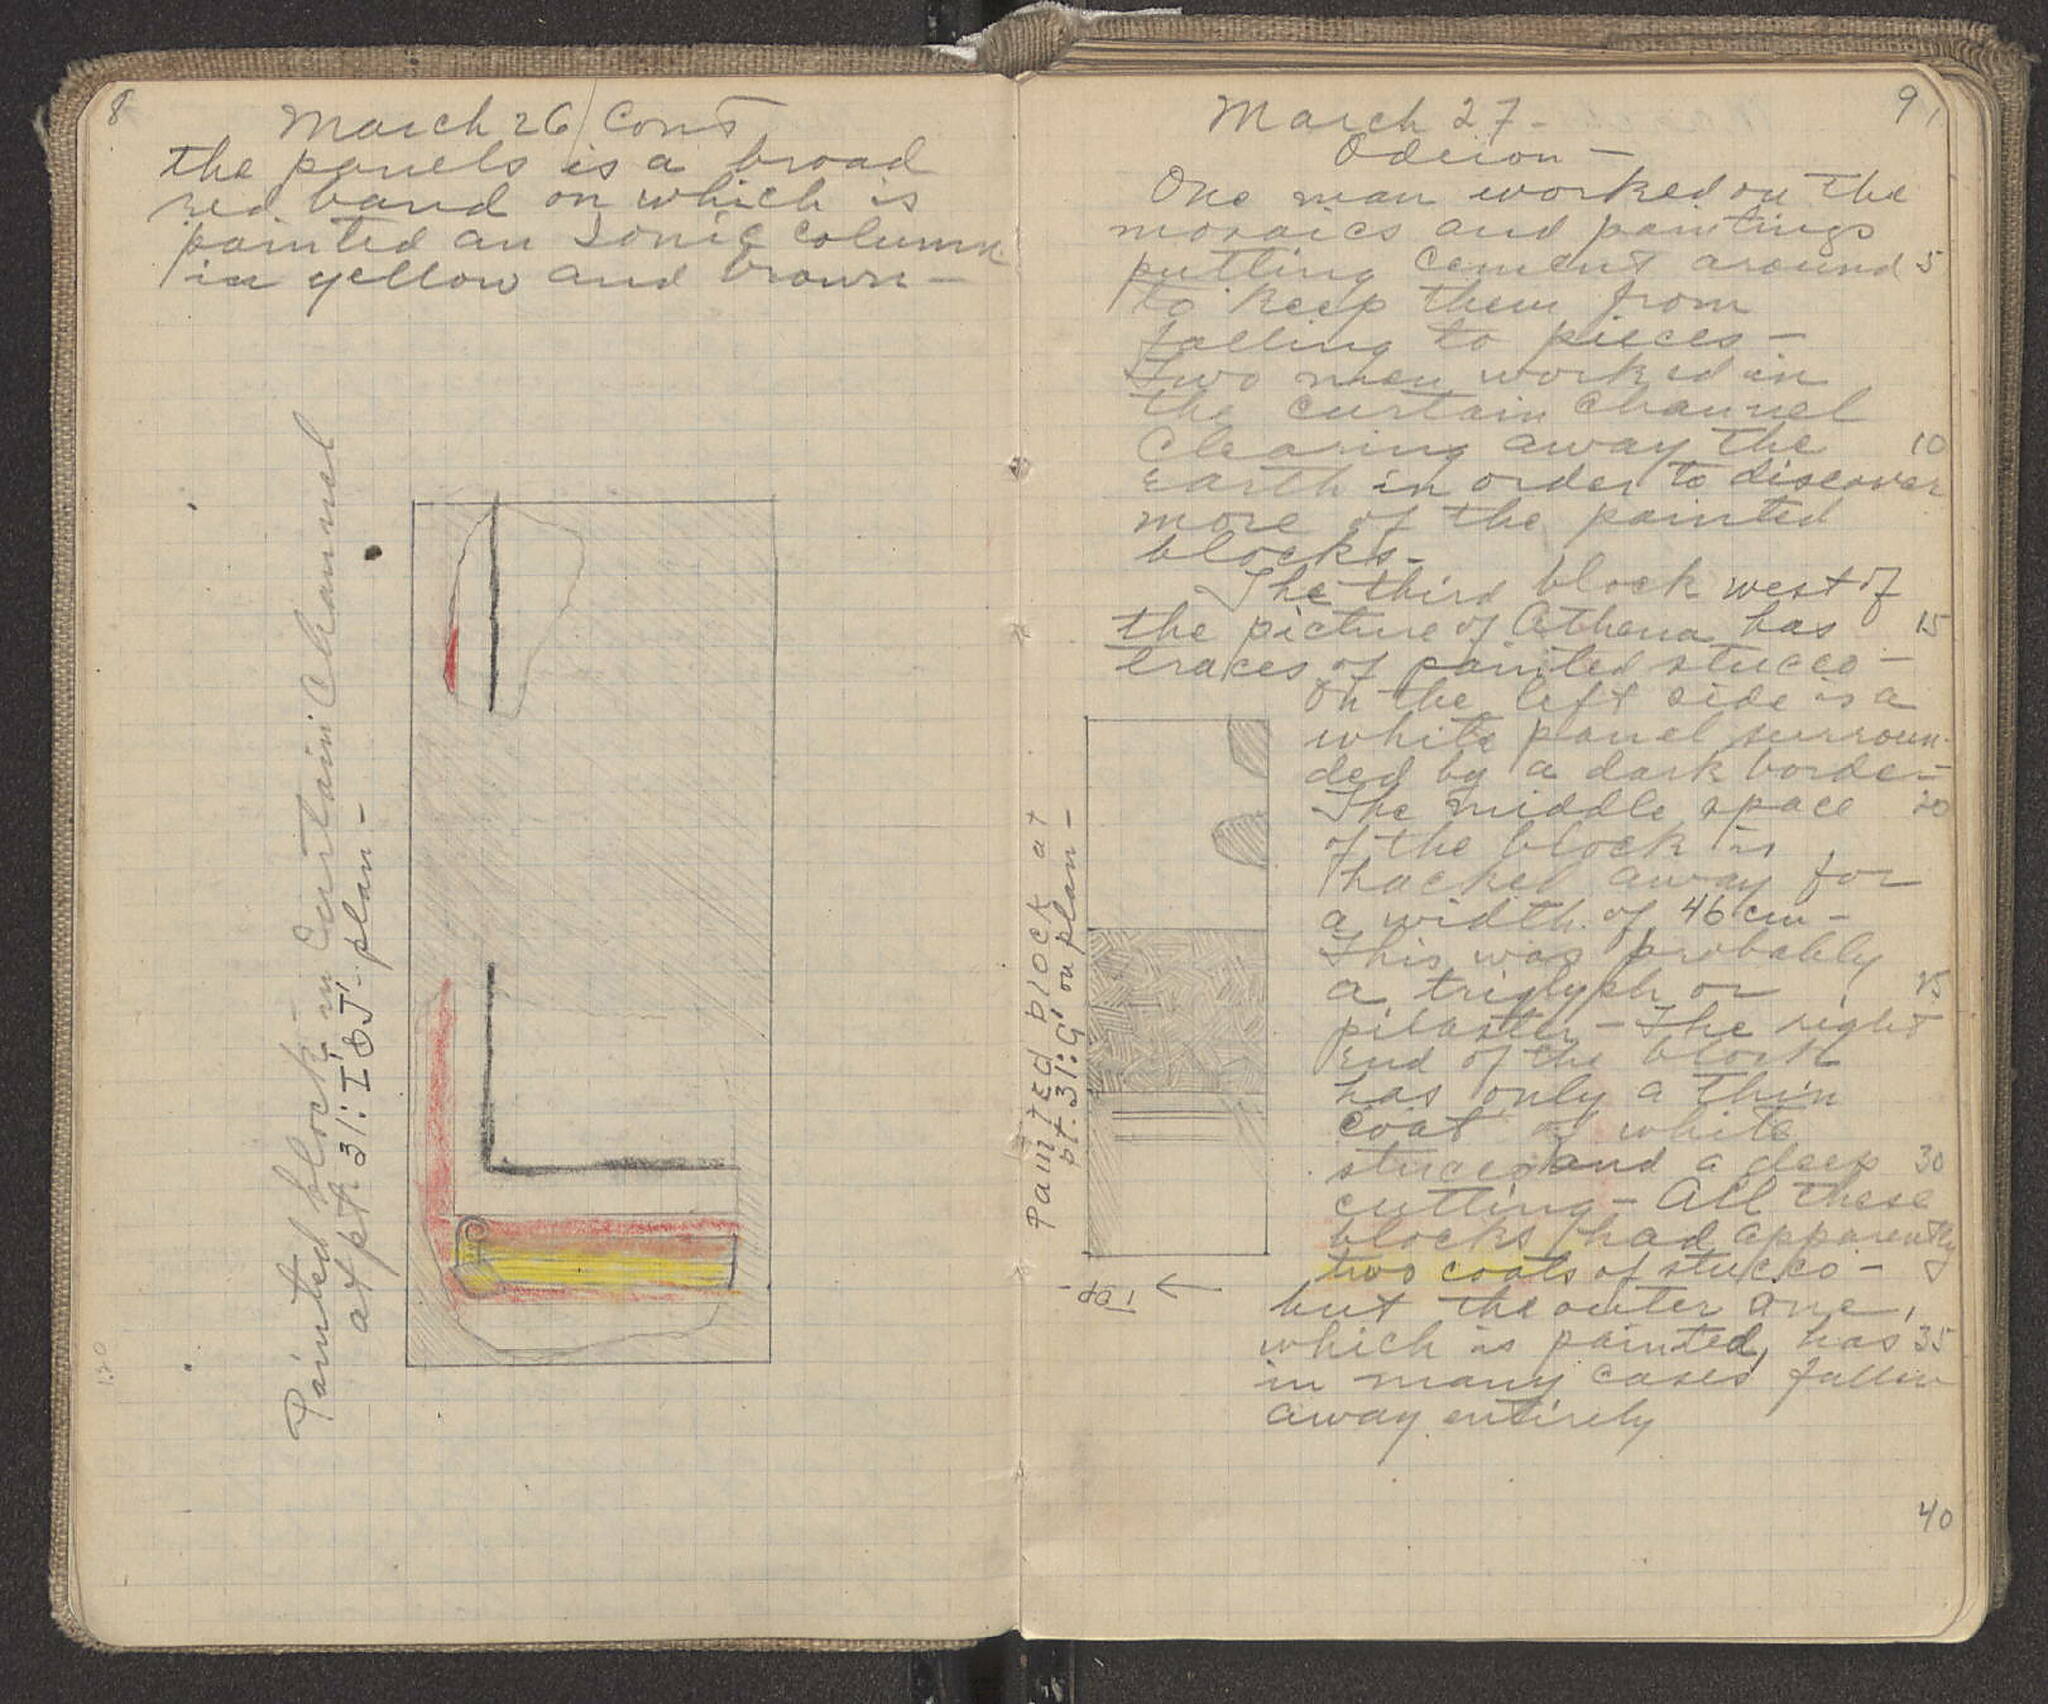 8
March 26/Cont
the panels is a broad
red band on which is
painted an Ionic column
in yellow and brown—
Painted block in Curtain Channel
at pt 31:I'&J'- plan-
9
March 27-
Odeion—
One man worked on the
mosaics and paintings
putting cement around 5
to keep them from
falling to pieces—
Two men worked in
the curtain channel
clearing away the 10
earth in order to discover
more of the painted
blocks-
The third block west of
the picture of Athena has 15
traces of painted stucco—
On the left side is a
white panel surroun-
ded by a dark border—
The middle space 20
of the block is
hacked away for
a width of 46 cm—
This was probably
a triglyph or 25
pilaster—The right
end of the block
has only a thin
coat of white
stucco and a deep 30
cutting—All these
blocks had apparently
two coats of stucco—
but the outer one,
which is painted, has 35
in many cases fallen
away entirely
40
Painted block at
pt. 31:G' on plan-
Top-